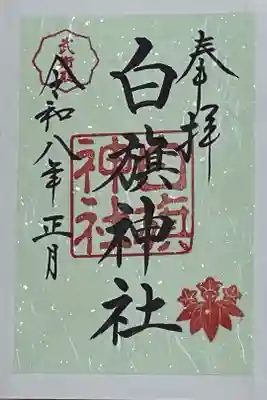 奉拝
白旗神社
白旗神社
令和八年正月